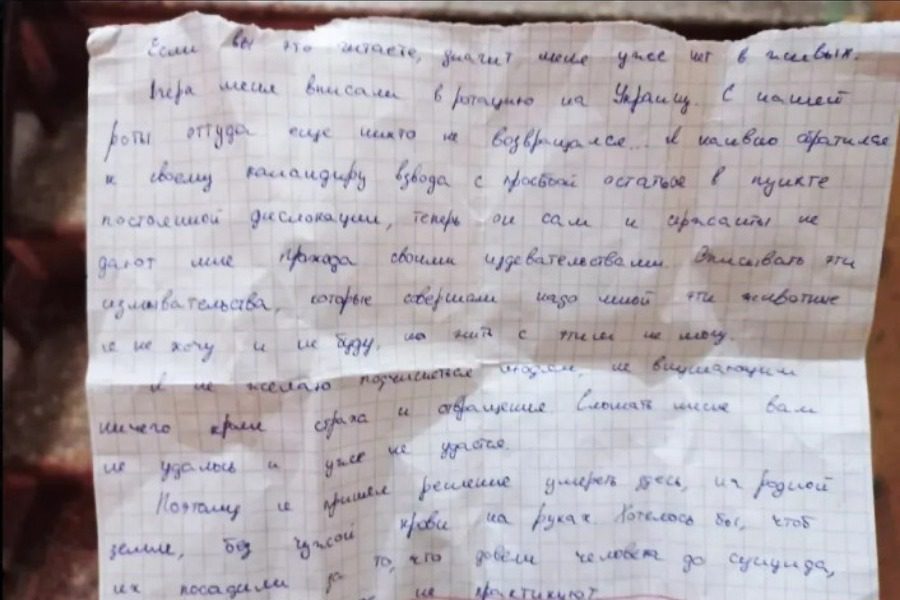 Если вы это читаете, значит меня уже нет в живых.
Вчера меня вписали в ротацию на Украину. С нашей
роты оттуда еще никто не возвращался... Я наивно обратился
к своему командиру взвода с просьбой остаться в пункте
постоянной дислокации, теперь он сам и сержанты не
дают мне прохода своими издевательствами. Описывать эти
издевательства, которые совершали надо мной эти животные
я не хочу и не буду, но жить с этим не могу.
Я не желаю подчиняться людям, не внушающим
ничего кроме страха и отвращения. Сломать меня вам
не удалось и уже не удастся.
Поэтому я принял решение умереть здесь, на родной
земле, без чужой крови на руках. Хотелось бы, чтоб
их посадили за то, что довели человека до суицида,
не практикуют